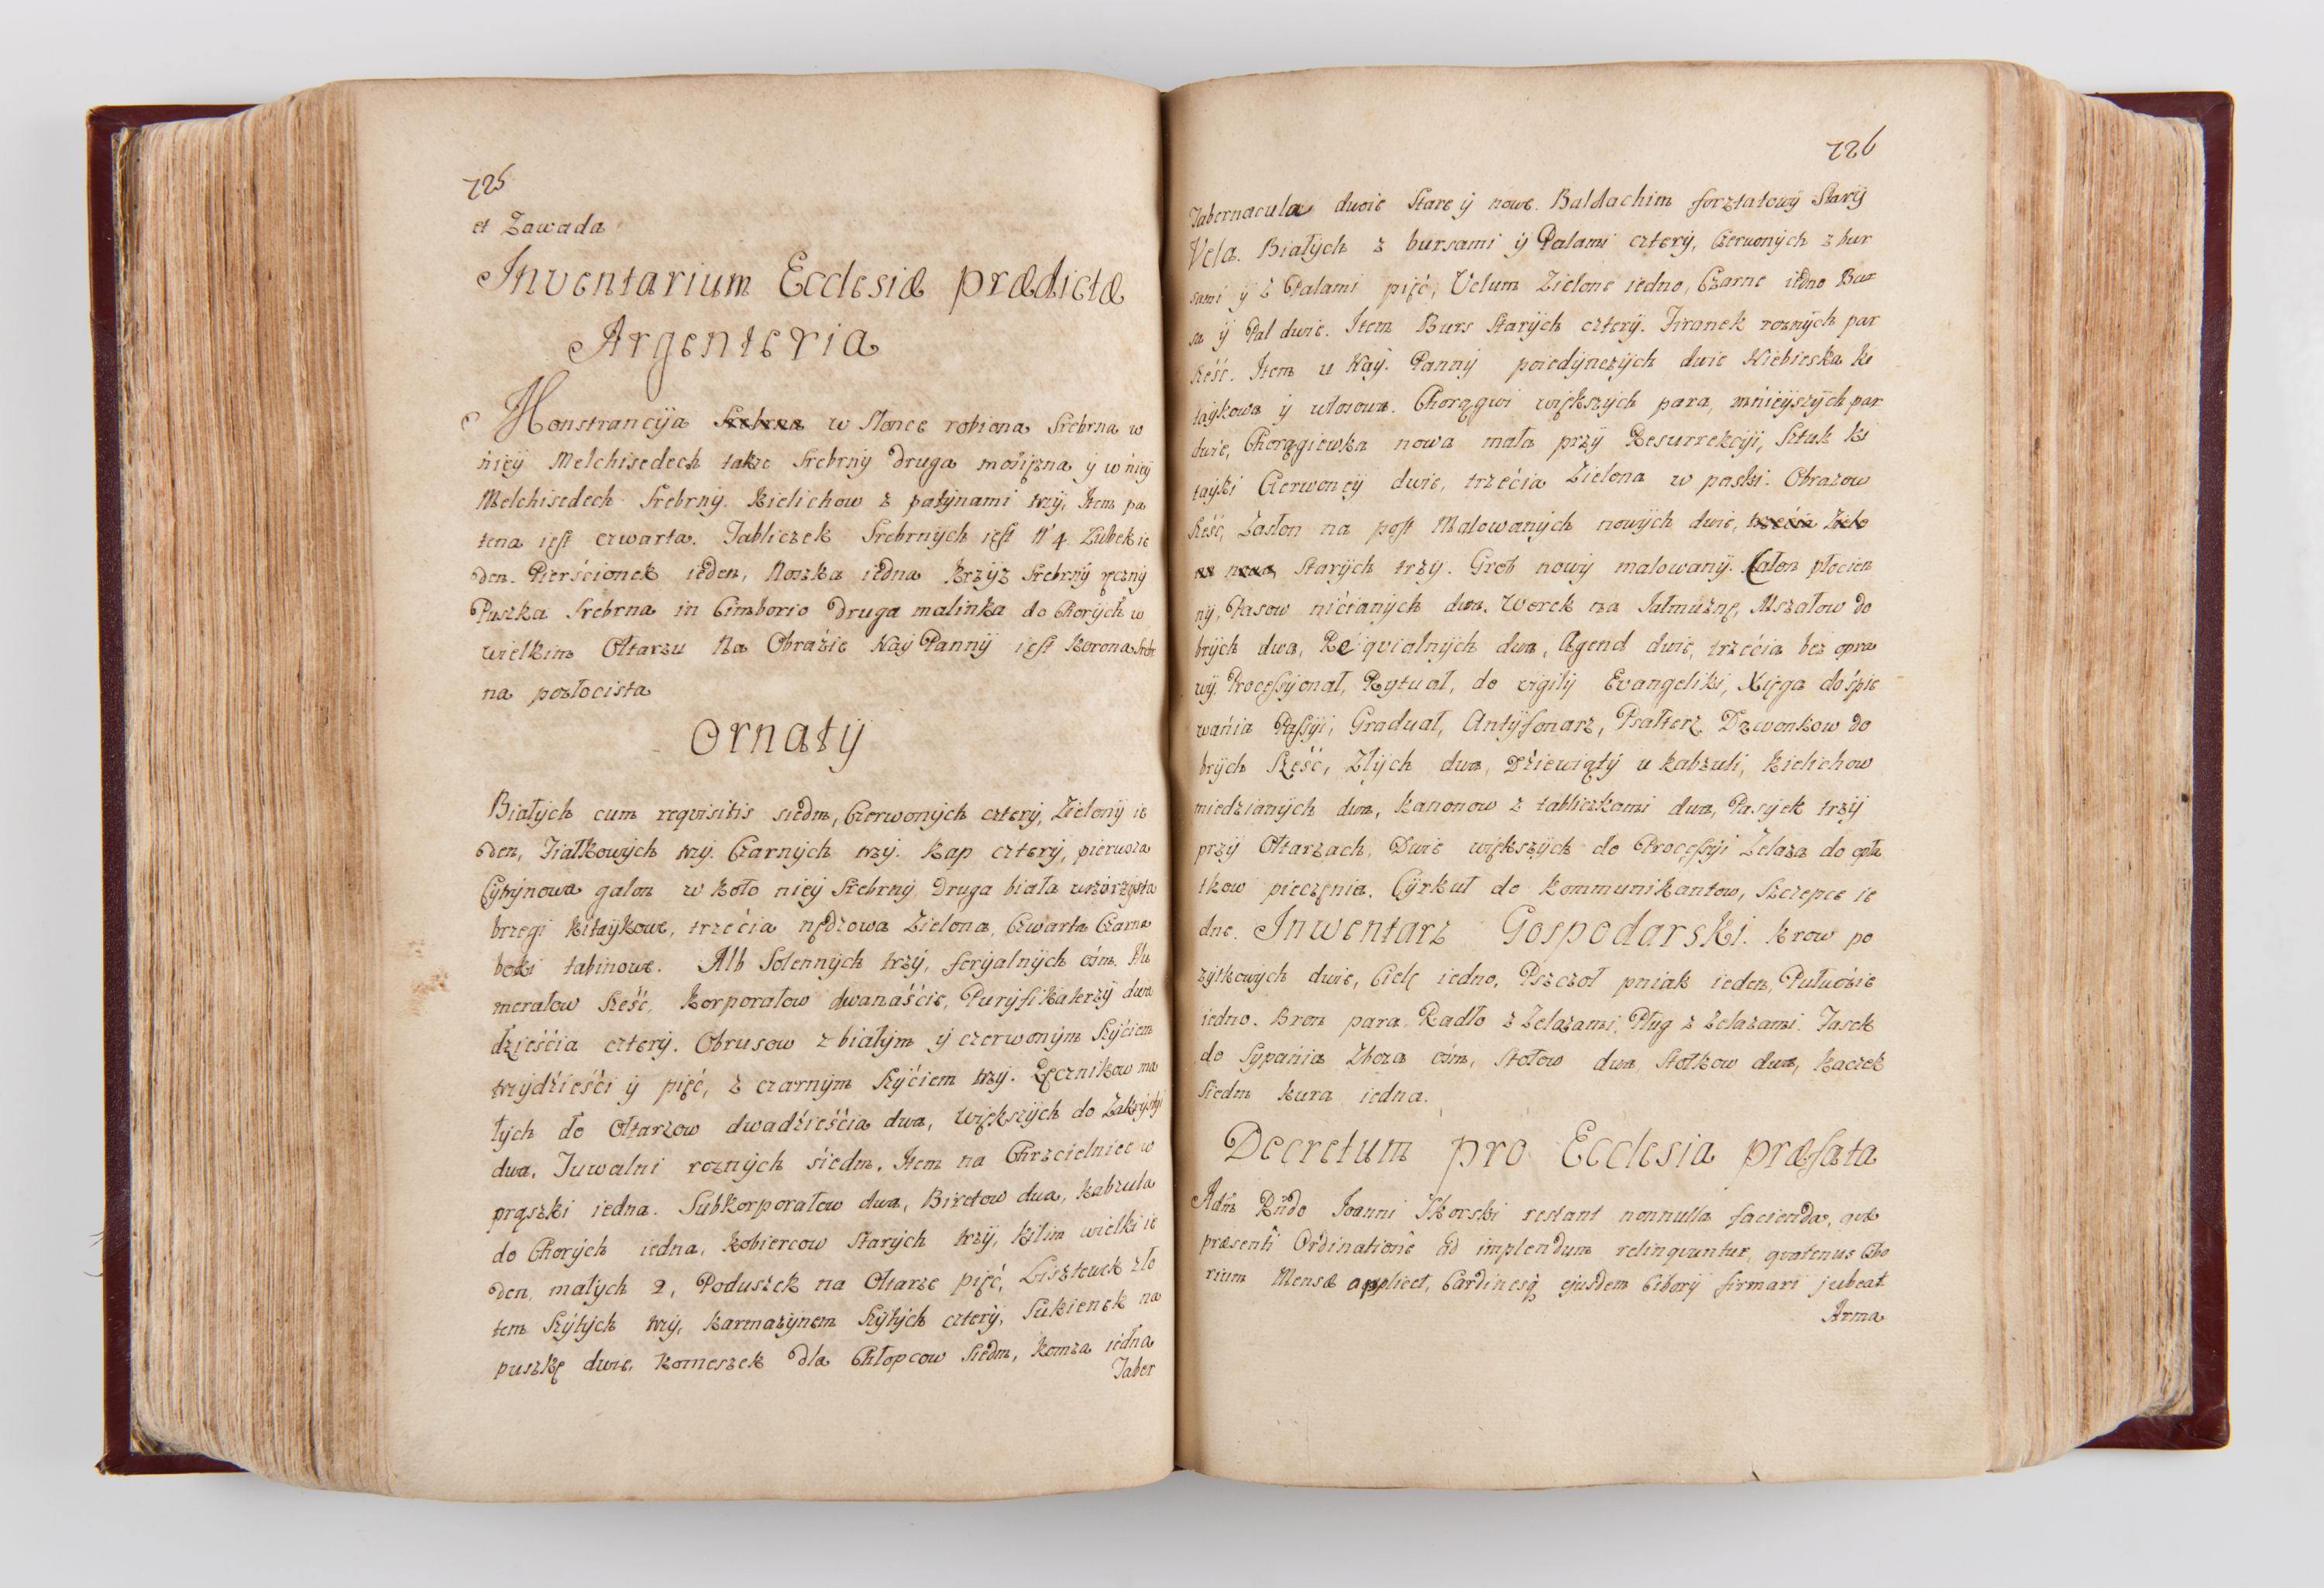 725
et Zawada
Inventarium Ecclesiæ prædictæ
Argenteria
Monstrancÿia Srebrna w Słonce robiona Srebrna w
nieÿ Melchisedech także Srebrnÿ druga mosiężna ÿ w nieÿ
Melchisedech Srebrnÿ. Kielichow z patÿnami trzÿ, Item pa
tena iest czwarta. Tabliczek Srebrnÿch iest Nº 4 Zubek ie
den. Pierścionek ieden, Noszka iedna Krzÿż Srebrnÿ ręcznÿ
Puszka Srebrna in Cimborio druga malinka do Chorÿch w
wielkim Ołtarzu Na Obraźie Naÿ Pannÿ iest Korona Srebr
na pozłocista
Ornatÿ
Białÿch cum requisitis siedm, Czerwonÿch czterÿ, Zielonÿ ie
den, Fiałkowÿch trzÿ. Czarnÿch trzÿ. Kap czterÿ, pierwsza
Cÿtrÿnowa galon w koło nieÿ Srebrnÿ, Druga biała wzorzÿsta
brzegi kitaÿkowe, trzećia nędzowa Zielona, Czwarta Czarna
boki tabinowe. Alb Solennÿch trzÿ, ferÿalnÿch ośm. Hu
merałow Sześć, Korporałow dwanaście, Purÿfikaterzÿ dwa
dźieśćia czterÿ. Obrusow z białÿm ÿ czerwonÿm Szÿćiem
trzÿdźieśći ÿ pięć, z czarnÿm Szÿćiem trzÿ. Ręcznikow ma
łÿch do Ołtarzow dwadźieśćia dwa, Większÿch do Zakrÿstÿi
dwa, Tuwalni roznÿch śiedm. Item na Chrzcielnice w
prąszki iedna. Subkorporałow dwa, Biretow dwa, Kabzula
do Chorÿch iedna, Kobiercow Starÿch trzÿ, Kilim wielki ie
den, małÿch 2, Poduszek na Ołtarze pięć, Lisztewek zło
tem Szÿtÿch trzÿ, Karmazÿnem Szÿtÿch czterÿ, Sukienek na
puszkę dwie, Komeszek dla Chłopcow Siedm, Komża iedna
Taber
726
Tabernacula dwoie Stare ÿ nowe. Baldachim forsztatowÿ Starÿ
Vela. Białÿch z bursami ÿ Palami czterÿ, Czerwonÿch z bur
sami ÿ z Palami pięć, Velum Zielone iedno, Czarne iedno Bur
sa ÿ Pal dwie. Item Burs Starÿch czterÿ. Firanek roznÿch par
sześć. Item u Naÿ. Pannÿ poiedÿnczÿch dwie Niebieska ki
taÿkowa ÿ włosowa. Chorągwi większÿch para, mnieÿszÿch par
dwie, Chorągiewka nowa mała przÿ Resurrekcÿi, Sztuk ki
taÿki Czerwoneÿ dwie, trzećia Zielona w paski. Obrazow
Sześć, Zasłon na post Malowanÿch nowÿch dwie, trzećia Zielo
na nowa Starÿch trzy. Grob nowÿ malowanÿ. Całon płocien
nÿ, Pasow nićianÿch dwa. Worek na Jałmużnę, Mszałow do
brÿch dwa, Reiqvialnÿch dwa, Agend dwie, trzećia bez opra
wÿ. Processÿonał, Rytuał, do wigilÿ Evangeliki, Xięga do śpie
wańia Passÿi, Graduał, Antÿfonarz, Psałterz. Dzwonkow do
brÿch Sześć, Złÿch dwa, Dźiewiątÿ u kabzuli, Kielichow
miedzianÿch dwa, Kanonow z tabliczkami dwa, Pasÿek trzÿ
przÿ Ołtarzach, Dwie większÿch do Processÿi Zelaza do opła
tkow pieczęnia. Cÿrkuł do Kommunikantow, Szczepce ie
dne. Inwentarz Gospodarski. Krow po
zÿtkowÿch dwie, Cielę iedno, Pszczoł pniak ieden, Pułwozie
iedno. Bron para Radło z Zelazami, Pług z Zelazami. Jasek
do Sypańia Zboza ośm, Stołow dwa Stołkow dwa, Kaczek
Siedm Kura iedna.
Decretum pro Ecclesia præfata
Adm Rndo Joanni Skorski restant nonnulla facienda, quæ
præsenti Ordinatione ad implendum relinquuntur, qvatenus Cibo
rium Mensæ applicet, Cardinesq ejusdem Ciborÿ firmari jubeat
Arma